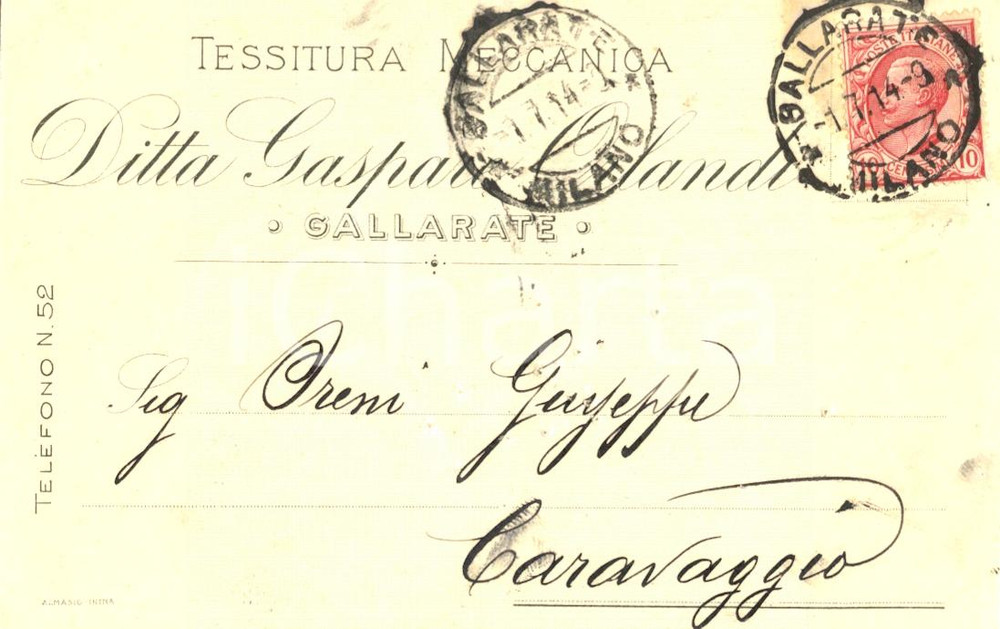 TESSITURA MECCANICA
Ditta Gaspare Orlandi
• GALLARATE •
TELEFONO N. 52
GALLARATE
-1.7.14-9
* MILANO
GALLARATE
-1.7.14-9
* MILANO
POSTE ITALIANE
10 CENT 10
iCharta
Sig Oreni Giuseppe
Caravaggio